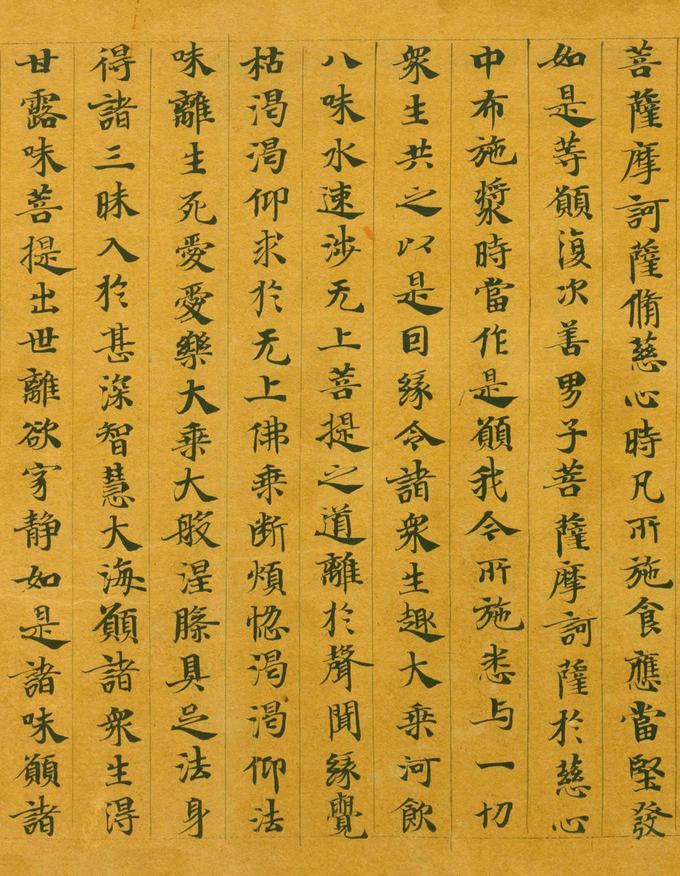 菩薩摩訶薩脩慈心時凡所施食應當堅發
如是等願復次善男子菩薩摩訶薩於慈心
中布施漿時當作是願我今所施悉与一切
衆生共之以是因緣令諸衆生趣大乘河飲
八味水速涉无上菩提之道離於聲聞緣覺
枯渴渴仰求於无上佛乘断煩惱渴渴仰法
味離生死愛愛樂大乘大般涅槃具足法身
得諸三昧入於甚深智慧大海願諸衆生得
甘露味菩提出世離欲寂静如是諸味願諸